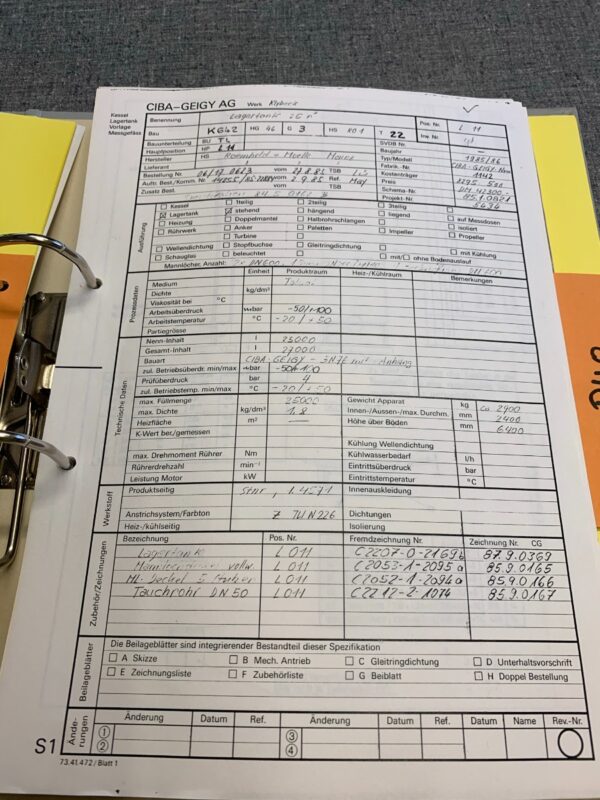 CIBA–GEIGY AG Werk Klybeck
Kessel
Lagertank
Vorlage
Messgefäss
Benennung Lagertank 25 m³ Pos. Nr. L 11
Bau K642 HG 46 G 3 HS R01 T 22 Inv. Nr.
Bauunterteilung BU TL SVDB Nr.
Hauptposition HP L11 Baujahr —
Hersteller HS Rosenmund + Moelle Mainz Typ/Modell 1985/86
Lieferant Fabrik.-Nr. CIBA-GEIGY Norm
Bestellung Nr. vom 27.8.85 TSB Kostenträger 1142
Auftr. Best./Komm. Nr. vom 2.9.85 Ref. May Preis
Zusatz Best. vom TSB Schema-Nr.
Projekt-Nr. 5676
Ausführung
☐ Kessel ☐ 1teilig ☐ 2teilig ☐ 3teilig ☐
☒ Lagertank ☒ stehend ☐ hängend ☐ liegend ☐ auf Messdosen
☐ Heizung ☐ Doppelmantel ☐ Halbrohrschlangen ☐ ☐ isoliert
☐ Rührwerk ☐ Anker ☐ Paletten ☐ Impeller ☐ Propeller
☐ Turbine ☐
☐ Wellendichtung ☐ Stopfbuchse ☐ Gleitringdichtung ☐ ☐ mit Kühlung
☐ Schauglas ☐ beleuchtet ☐ ☐ mit/☐ ohne Bodenauslauf
Mannlöcher, Anzahl:
Prozessdaten
Einheit Produktraum Heiz-/Kühlraum Bemerkungen
Medium
Dichte kg/dm³
Viskosität bei °C
Arbeitsüberdruck mbar -50/+100
Arbeitstemperatur °C -20/+50
Partiegrösse
Technische Daten
Nenn-Inhalt l 25000
Gesamt-Inhalt l 27000
Bauart CIBA-GEIGY - mit Anhang
zul. Betriebsüberdr. min/max mbar -50/+100
Prüfüberdruck bar 4
zul. Betriebstemp. min/max °C -20/+50
max. Füllmenge 25000 Gewicht Apparat kg ca. 2900
max. Dichte kg/dm³ 1.8 Innen-/Aussen-/max. Durchm. mm 2400
Heizfläche m² — Höhe über Böden mm 6400
K-Wert ber./gemessen
Kühlung Wellendichtung
max. Drehmoment Rührer Nm Kühlwasserbedarf l/h
Rührerdrehzahl min⁻¹ Eintrittsüberdruck bar
Leistung Motor kW Eintrittstemperatur °C
Werkstoff
Produktseitig 1.4571 Innenauskleidung
Anstrichsystem/Farbton Z TWN226 Dichtungen
Heiz-/kühlseitig Isolierung
Zubehör/Zeichnungen
Bezeichnung Pos. Nr. Fremdzeichnung Nr. Zeichnung Nr. CG
Lagertank L011 C2207-0-2169b 87.9.0369
L011 C2053-1-2095a 85.9.0165
ML-Deckel L011 C2052-1-2094a 85.9.0166
Tauchrohr DN 50 L011 C2212-2-1074 85.9.0167
Beilageblätter
Die Beilageblätter sind integrierender Bestandteil dieser Spezifikation
☐ A Skizze ☐ B Mech. Antrieb ☐ C Gleitringdichtung ☐ D Unterhaltsvorschrift
☐ E Zeichnungsliste ☐ F Zubehörliste ☐ G Beiblatt ☐ H Doppel Bestellung
Ände-rungen
Änderung Datum Ref. Änderung Datum Ref. Datum Name Rev.-Nr.
① ③
② ④
S1
73.41.472 / Blatt 1